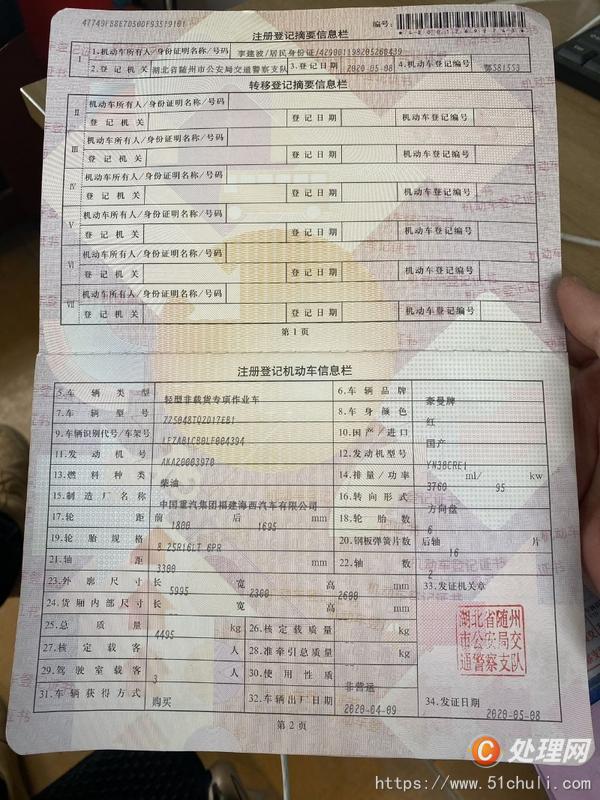 47749FB8E7D500F93519101
编号:
注册登记摘要信息栏
I
1.机动车所有人/身份证明名称/号码 李建波/居民身份证/429001198205260439
2.登记机关 湖北省随州市公安局交通警察支队 3.登记日期 2020-05-08 4.机动车登记编号 鄂S81553
转移登记摘要信息栏
II
机动车所有人/身份证明名称/号码
登记机关 登记日期 机动车登记编号
III
机动车所有人/身份证明名称/号码
登记机关 登记日期 机动车登记编号
IV
机动车所有人/身份证明名称/号码
登记机关 登记日期 机动车登记编号
V
机动车所有人/身份证明名称/号码
登记机关 登记日期 机动车登记编号
VI
机动车所有人/身份证明名称/号码
登记机关 登记日期 机动车登记编号
VII
机动车所有人/身份证明名称/号码
登记机关 登记日期 机动车登记编号
第1页
注册登记机动车信息栏
5.车辆类型 轻型非载货专项作业车 6.车辆品牌 豪曼牌
7.车辆型号 ZZ5048TQZD17EB1 8.车身颜色 红
9.车辆识别代号/车架号 LEZAB1CB0LF004394 10.国产/进口 国产
11.发动机号 AKA20003970 12.发动机型号 YN38CRE1
13.燃料种类 柴油 14.排量/功率 3760 ml/ 95 kw
15.制造厂名称 中国重汽集团福建海西汽车有限公司 16.转向形式 方向盘
17.轮距 前 1800 后 1695 mm 18.轮胎数 6
19.轮胎规格 8.25R16LT 6PR 20.钢板弹簧片数 后轴 16 片
21.轴距 3300 mm 22.轴数 2
23.外廓尺寸 长 5995 宽 2300 高 2600 mm 33.发证机关章
24.货厢内部尺寸 长 宽 高 mm
25.总质量 4495 kg 26.核定载质量 kg
27.核定载客 人 28.准牵引总质量 kg
29.驾驶室载客 3 人 30.使用性质 非营运
31.车辆获得方式 购买 32.车辆出厂日期 2020-04-09 34.发证日期 2020-05-08
湖北省随州
市公安局交
通警察支队
第2页
C 处理网
https://www.51chuli.com/